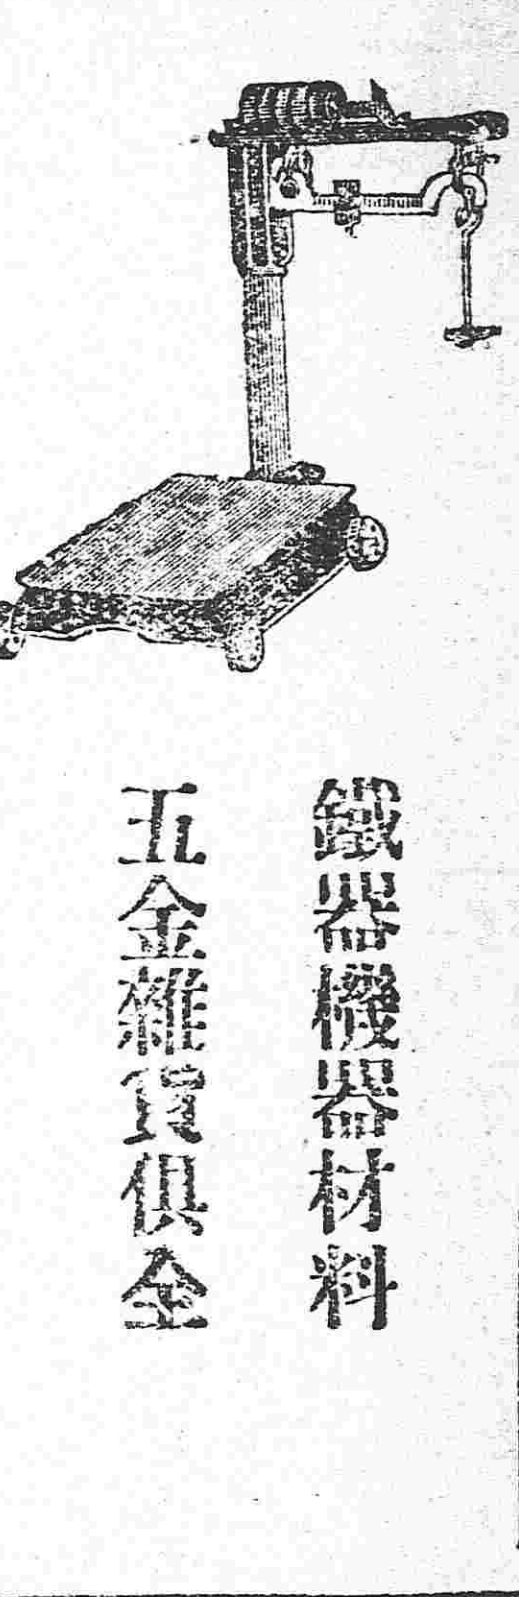 鐵器機器材料
五金雜貨俱全